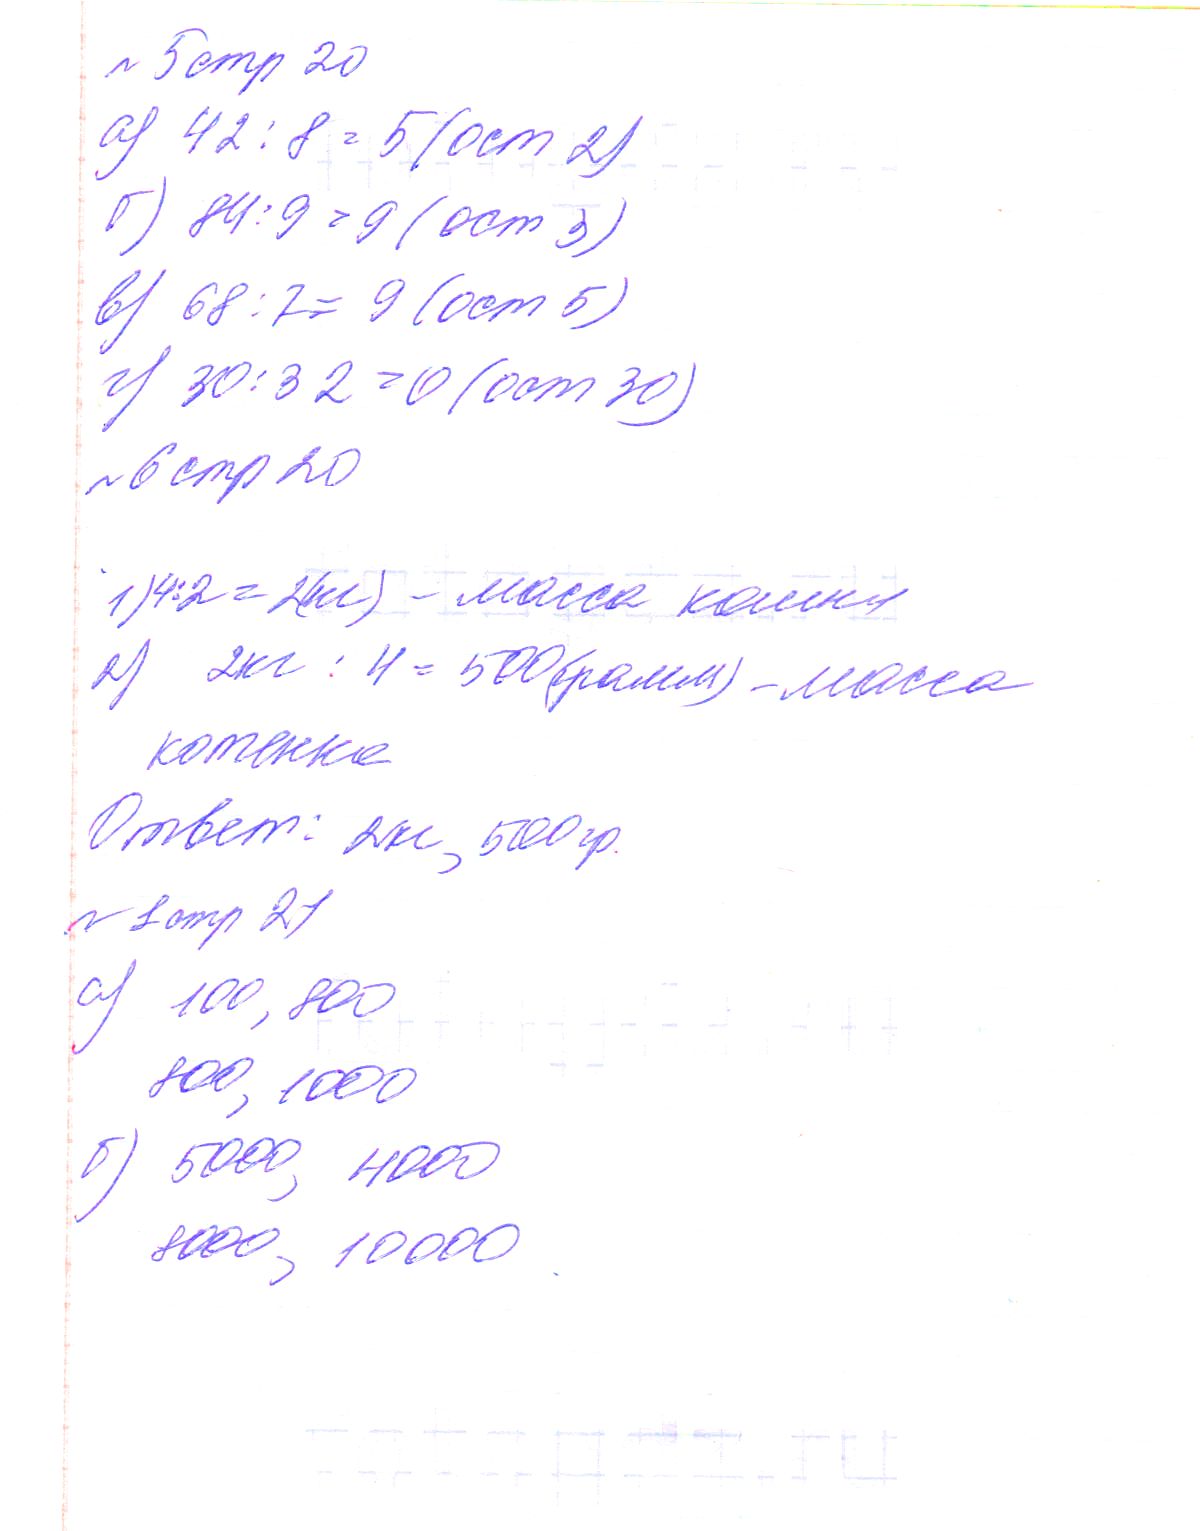 ~ 5 стр 20
а) 42 : 8 = 5 (ост 2)
б) 84 : 9 = 9 (ост 3)
в) 68 : 7 = 9 (ост 5)
г) 30 : 32 = 0 (ост 30)
~ 6 стр 20
1) 4:2 = 2(кг) - масса кошки
2) 2кг : 4 = 500(грамм) - масса
котенка
Ответ: 2кг, 500гр.
~ 1 стр 21
а) 100, 800
800, 1000
б) 5000, 4000
8000, 10000